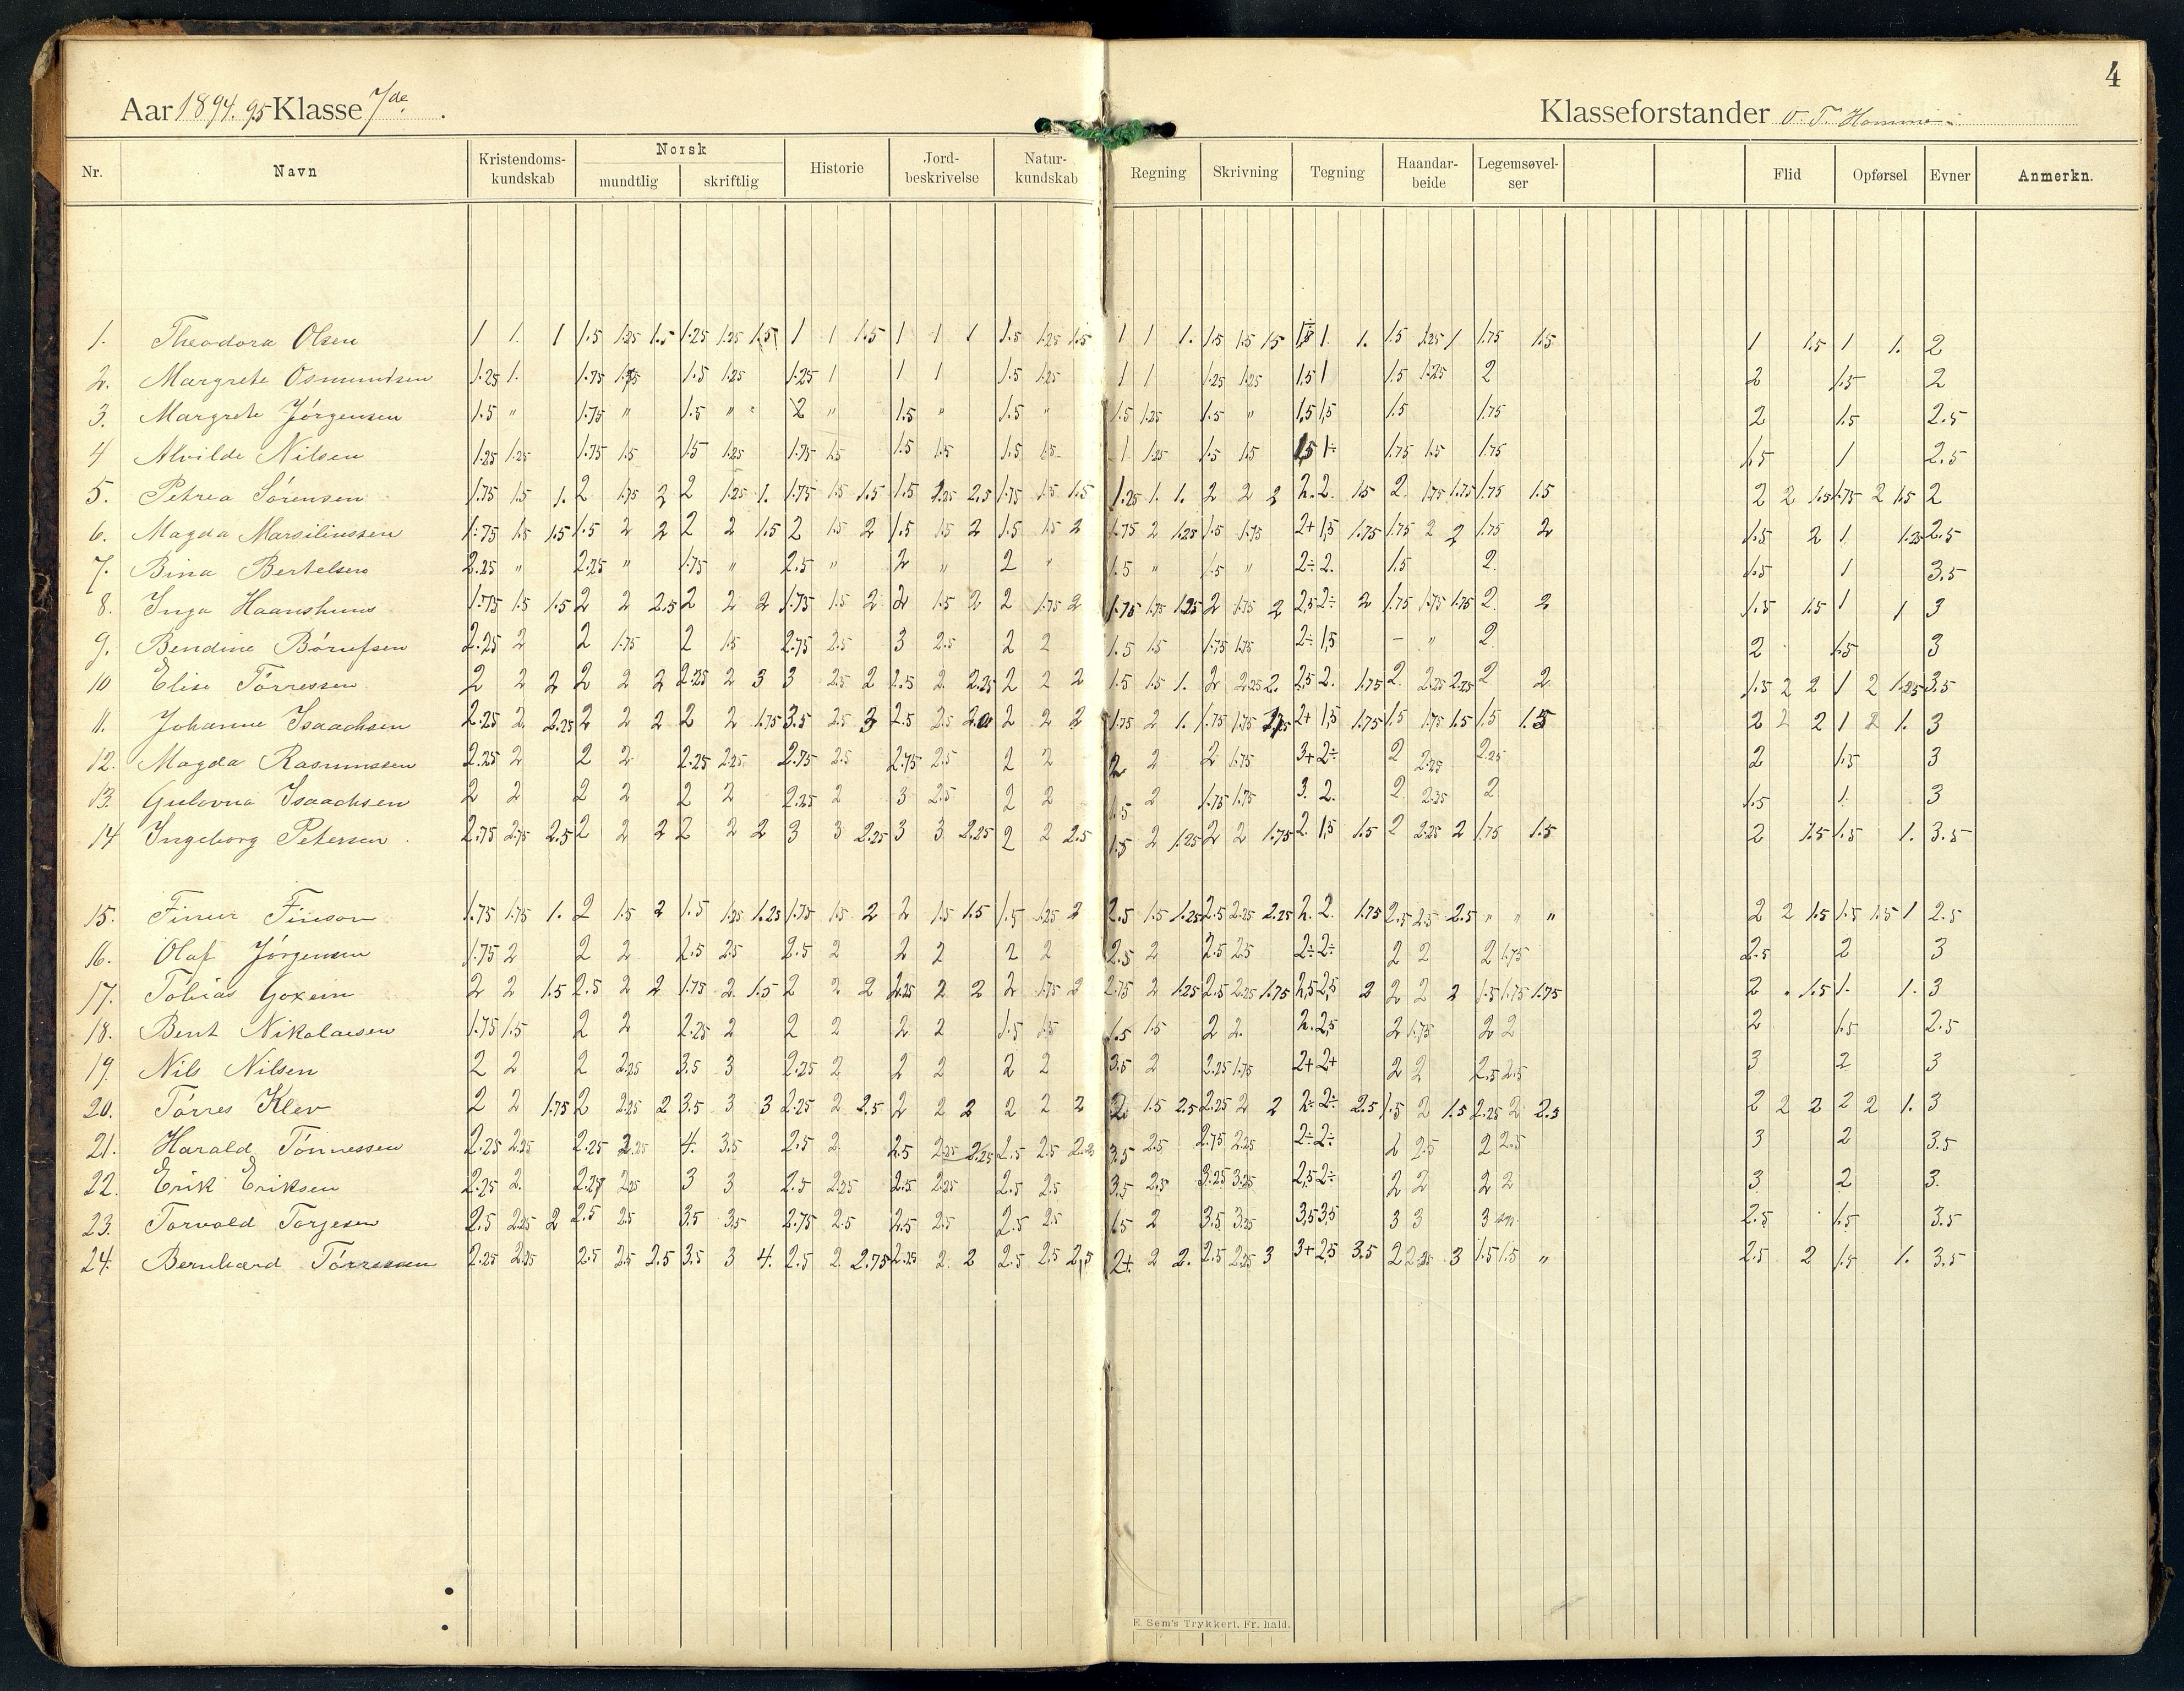 4
Aar 1894.95 Klasse 7de.
Klasseforstander O. T. Homme
Nr. Navn Kristendoms-kundskab Norsk mundtlig skriftlig Historie Jord-beskrivelse Natur-kundskab Regning Skrivning Tegning Haandar-beide Legemsøvel-ser Flid Opførsel Evner Anmerkn.
1. Theodora Olsen 1 1. 1 1.5 1.25 1.5 1.25 1.25 1.5 1 1 1.5 1 1 1 1.5 1.25 1.5 1 1 1. 1.5 1.5 1.5 1. 1. 1.5 1.25 1 1.75 1.5 1 1.5 1 1. 2
2. Margrete Osmundsen 1.25 1. 1.75 1.5 1.25 1.25 1 1 1 1.5 1.25 1 1 1.25 1.25 1,5 1 1.5 1.25 2 2 1.5 2
3. Margrete Jørgensen 1.5 " 1.75 " 1.5 " " 2 " 1.5 " 1.5 " 1.5 1.25 1.5 " 1,5 1,5 1.5 1.75 2 1.5 2.5
4 Alvilde Nilsen 1.25 1.25 1.75 1.5 1.5 1.25 1.75 1.5 1.5 1.5 1.5 1.5 1 1.25 1.5 1.5 1,5 1÷ 1.75 1.5 1.75 1.5 1 2.5
5. Petrea Sørensen 1.75 1.5 1. 2 1.75 2 2 1.25 1. 1.75 1.5 1.5 1.5 1.25 2.5 1.75 1.5 1.5 1.25 1. 1. 2 2 2 2. 2. 1.5 2. 1.75 1.75 1.75 1.5 2 2 1.5 1.75 2 1.5 2
6. Magda Marsiliussen 1.75 1.5 1.5 1.5 2 2 2 2 1.5 2 1.5 2 1.5 1.5 2 1.5 1.5 2 1.75 2 1.25 1.5 1.75 2+ 1,5 1.75 1.75 2 2 1.75 2 1.5 2 1 1.25 2.5
7. Bina Bertelsen 2.25 " 2.25 " 1.75 " 2.5 " 2 " 2 " 1.5 " 1.5 " 2÷ 2. 1.5 2. 1.5 1 3.5
8. Inga Haanshuus 1.75 1.5 1.5 2 2 2.5 2 2 2 1.75 1.5 2 2 1.5 2 2 1.75 2 1.75 1.75 1.25 2 1.75 2 2,5 2÷ 2 1.75 1.75 1.75 2. 2 1.5 1.5 1 1 3
9. Bendine 2.25 2 2 1.75 2 1.5 2.75 2.5 3 2.5 2 2 1.5 1.5 1.75 1.75 2÷ 1,5 – " 2. 2 1.5 3
10 Elise Tørressen 2 2 2 2 2 2 2.25 2 3 3 2.5 2 2.5 2. 2.25 2 2 2 1.5 1.5 1. 2 2.25 2. 2,5 2. 1.75 2. 2.25 2.25 2 2 1.5 2 2 1 2 1.25 3.5
11. Johanne Isaachsen 2.25 2. 2.25 2 2 2 2 2 1.75 3.5 2.5 3 2.5 2.5 2 2 2 1.75 2 1. 1.75 1.75 2+ 1,5 1.75 1.5 1.75 1.5 1.5 1.5 2 2 2 1 2 1. 3
12. Magda Rasmussen 2.25 2 2 2 2.25 2.25 2.75 2.5 2.75 2.5 2 2 2 2 2 1.75 3+ 2÷ 2 2.25 2.25 2 1.5 3
13. Gulovna Isaachsen 2 2 2 2 2 2 2.25 2 3 2.5 2 2 1.5 2 1.75 1.75 3. 2. 2. 2.25 2 1.5 1. 3
14 Ingeborg Petersen 2.75 2.75 2.5 2 2 2 2 2 2 3 3 2.25 3 3 2.25 2 2 2.5 1.5 2 1.25 2 2 1.75 2. 1,5 1.5 2 2.25 2 1.75 1.5 2 1.5 1.5 1. 3.5
15. Finson 1.75 1.75 1. 2 1.5 2 1.5 1.25 1.25 1.75 1.5 2 2 1.5 1.5 1.5 1.25 2 2.5 1.5 1.25 2.5 2.25 2.25 2. 2. 1.75 2.5 2.5 2.5 " " " 2 2 1.5 1.5 1.5 1 2.5
16. Olaf Jørgensen 1.75 2 2 2 2.5 2.5 2.5 2 2 2 2 2 2.5 2 2.5 2.5 2÷ 2÷ 2 2 2 1.75 2.5 2 3
17. Tobias Goxem 2 2 1.5 2.5 2 2 1.75 2 1.5 2 2 2 2.25 2 2 2 1.75 2 2.75 2 1.25 2.5 2.25 1.75 2,5 2,5 2 2 2 2 1.5 1.75 1.75 2 1.5 1. 1. 3
18. Bent Nikolaisen 1.75 1.5 2 2 2.25 2 2 2 2 2 1.5 1.5 1.5 1.5 2 2. 2. 2,5 2 1.75 2 2 2 1.5 2.5
19. Nils Nilsen 2 2 2 2.25 3.5 3 2.25 2 2 2 2 2 3.5 2 2.25 1.75 2+ 2+ 2 2 2.5 2.5 3 2 3
20. Tørres Klev 2 2 1.75 2 2.25 2 3.5 3 3 2.25 2 2.5 2 2 2 2 2 2 2. 1.5 2.5 2.25 2 2 2÷ 2÷ 2.5 1.5 2 1.5 2.25 2 2.5 2 2 2 2 2 1. 3
21. Harald Tønnessen 2.25 2.25 2.25 2.25 4. 3.5 2.5 2 2.5 2.25 2.25 2.5 2.5 2.25 3.5 2.5 2.75 2.25 2÷ 2÷ 2 2.5 2 2.5 3 2 3.5
22. Erik Eriksen 2.25 2. 2.25 2.25 3 3 2.5 2.25 2.5 2.25 2.5 2.5 3.5 2.5 3.25 3.25 2,5 2÷ 2 2 2 2 3 2 3.
23. Torvald Torjesen 2.5 2.25 2 2.5 2.5 3.5 3.5 2.75 2.5 2.5 2.5 2.5 2.5 1.5 2 3.5 3.25 3,5 3,5 3 3 3 2.5 1.5 3.5
24. Bernhard Tørressen 2.25 2.25 2.5 2.5 2.5 3.5 3 4. 2.5 2 2.75 2.25 2 2 2.5 2.5 2,5 2+ 2 2. 2.5 2.25 3 3+ 2,5 3.5 2 2.25 3 1.5 1.5 " 2.5 2 1.5 1. 3.5
E. Sem's Trykkeri, Fr. hald.